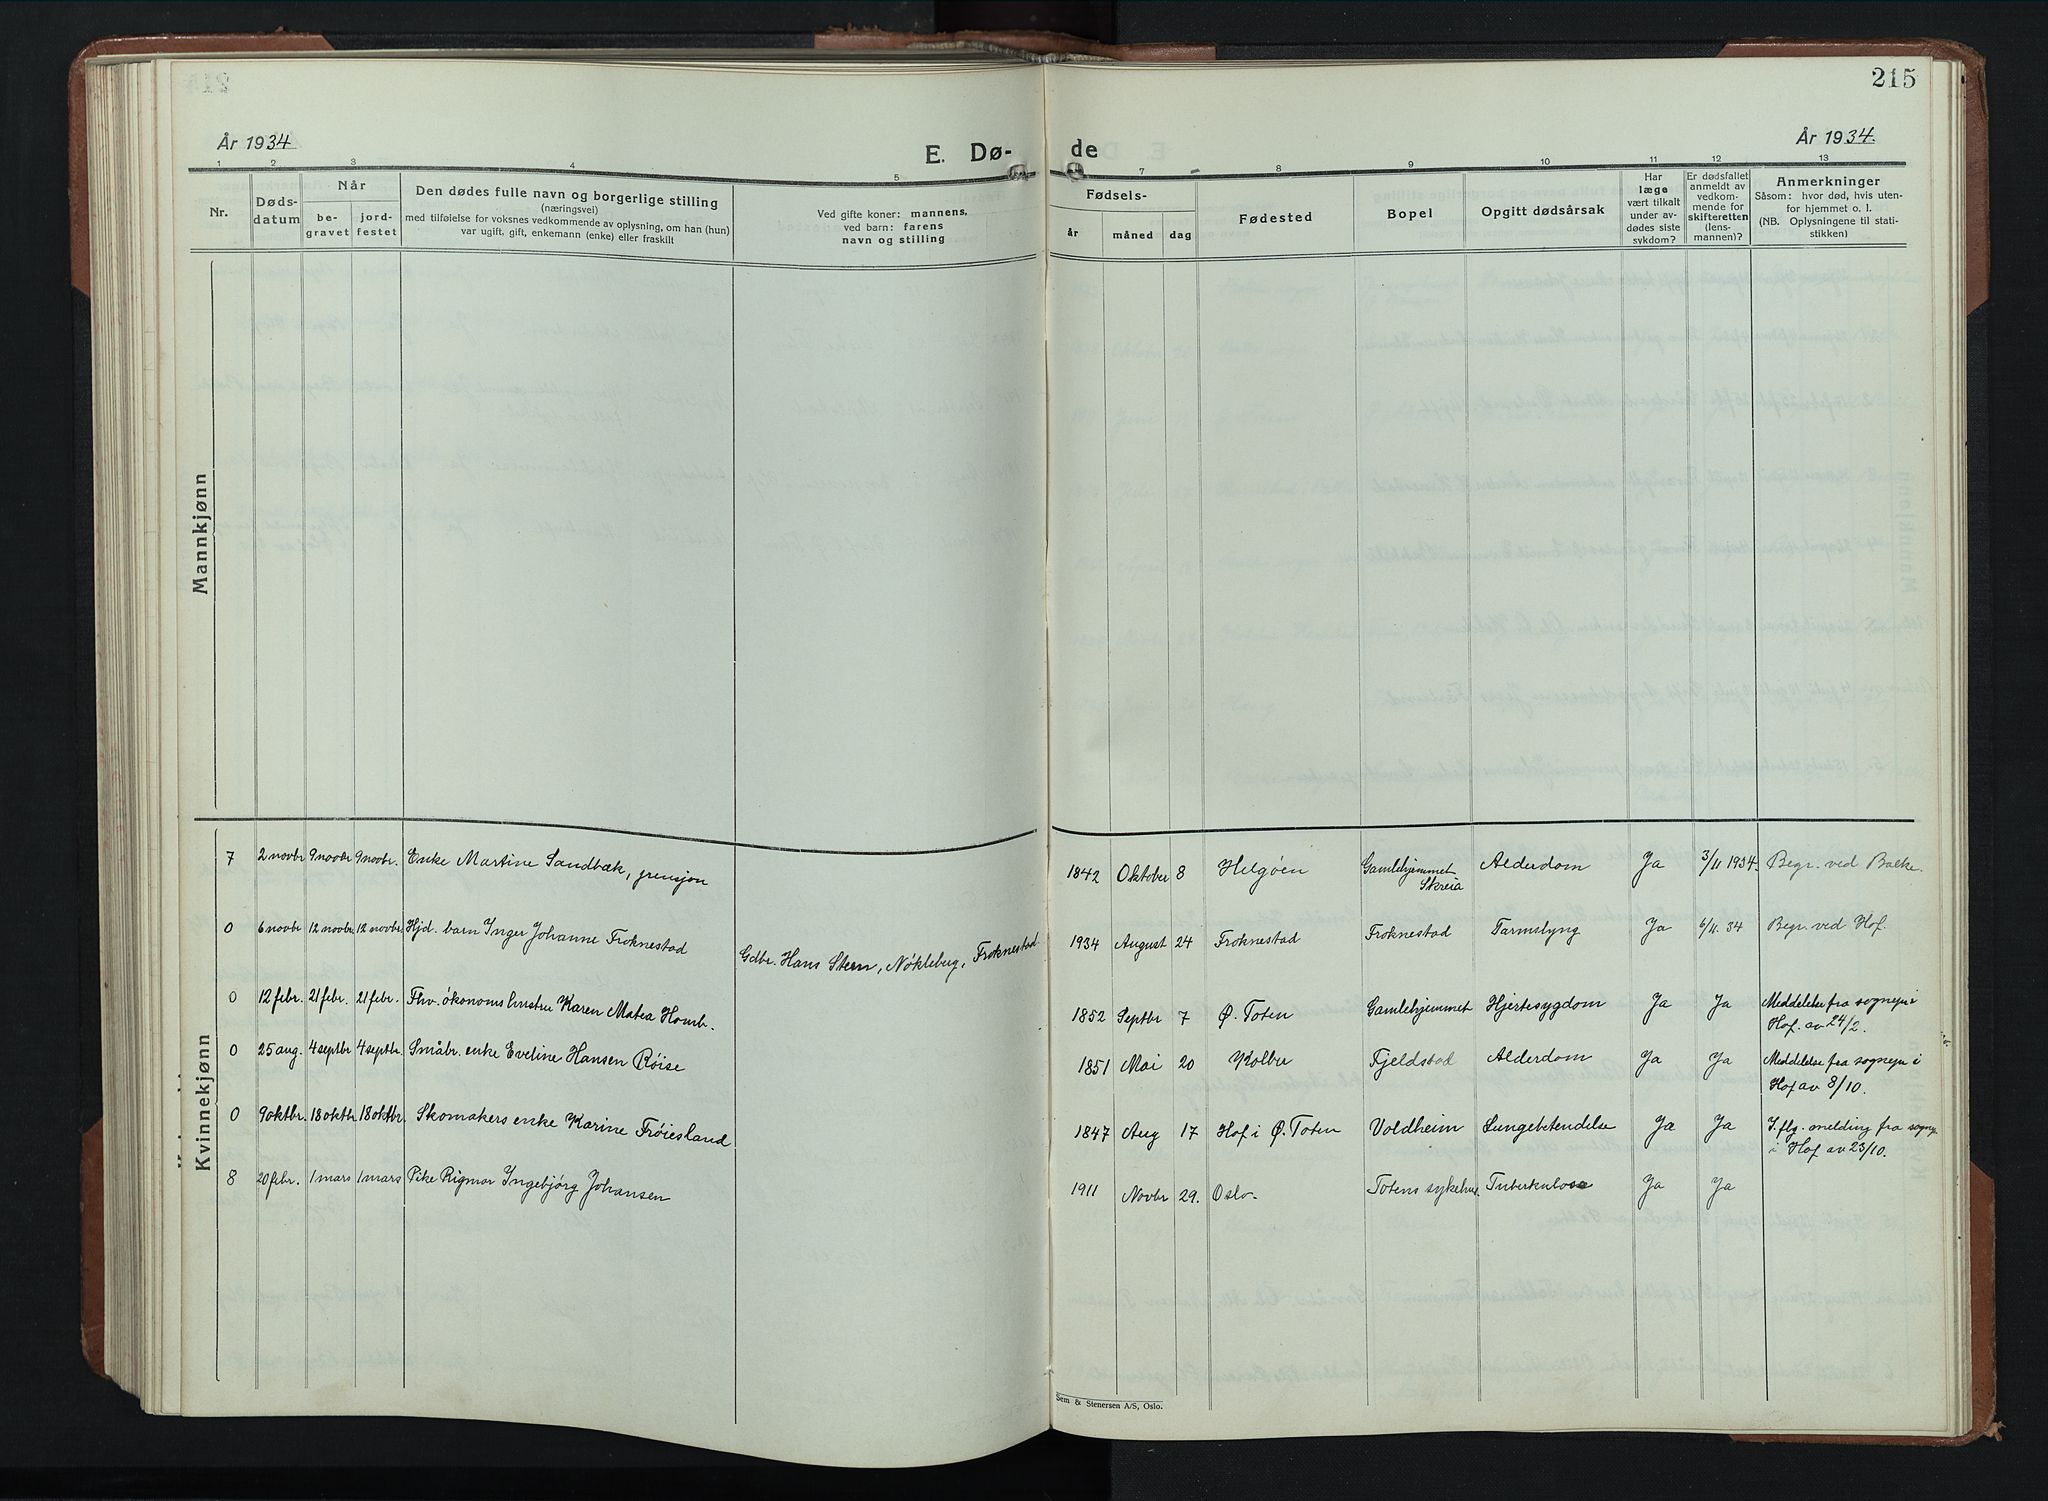 215
År 1934
E. Dø-
de
År 1934
1 2 3 4 5 7 8 9 10 11 12 13
Nr.
Døds-
datum
Når
be-
gravet
jord-
festet
Den dødes fulle navn og borgerlige stilling
(næringsvei)
med tilføielse for voksnes vedkommende av oplysning, om han (hun)
var ugift, gift, enkemann (enke) eller fraskilt
Ved gifte koner: mannens,
ved barn: farens
navn og stilling
Fødsels-
år
måned
dag
Fødested
Bopel
Opgitt dødsårsak
Har
læge
vært tilkalt
under av-
dødes siste
sykdom?
Er dødsfallet
anmeldt av
vedkom-
mende for
skifteretten
(lens-
mannen)?
Anmerkninger
Såsom: hvor død, hvis uten-
for hjemmet o. l.
(NB. Oplysningene til stati-
stikken)
Mannkjønn
Kvinnekjønn
7 2 novbr 9 novbr 9 novbr. Enke Martine Sandbæk, 1842 Oktober 8 Helgøen Gamlehjemmet Skreia Alderdom Ja 3/11 1934. Begr. ved Balke.
0 6 novbr 12 novbr. 12 novbr. Hjd. barn Inger Johanne Froknestad Gdbr. Hans Steen, Nökleberg, Froknestad. 1934 August 24 Froknestad Froknestad Tarmslyng Ja 6/11. 34 Begr. ved Hof.
0 12 febr. 21 febr. 21 febr. Fhv. økonoms hustru Karen Matea Homb. 1852 Septbr 7 Ø. Toten Gamlehjemmet Hjertesygdom Ja Ja Meddelelse fra sognepr i
Hof. av 24/2.
0 25 aug. 4 septbr 4 septbr Småbr. enke Eveline Hansen Røise 1851 Mai 20 Kolbu Fjeldstad Alderdom Ja Ja Meddelelse fra sognepr i
Hof av 8/10.
0 9 oktbr. 18 oktbr 18 oktbr. Skomakers enke Karine Frøiesland 1847 Aug 17 Hof i Ø. Toten Voldheim Lungebetendelse Ja Ja I. flg. melding fra sognepr
i Hof av 23/10.
8 20 febr. 1 mars 1 mars Pike Rigmor Ingebjørg Johansen 1911 Novbr 29. Oslo. Totens sykehus. Tuberkulose Ja Ja
Sem & Stenersen A/S, Oslo.